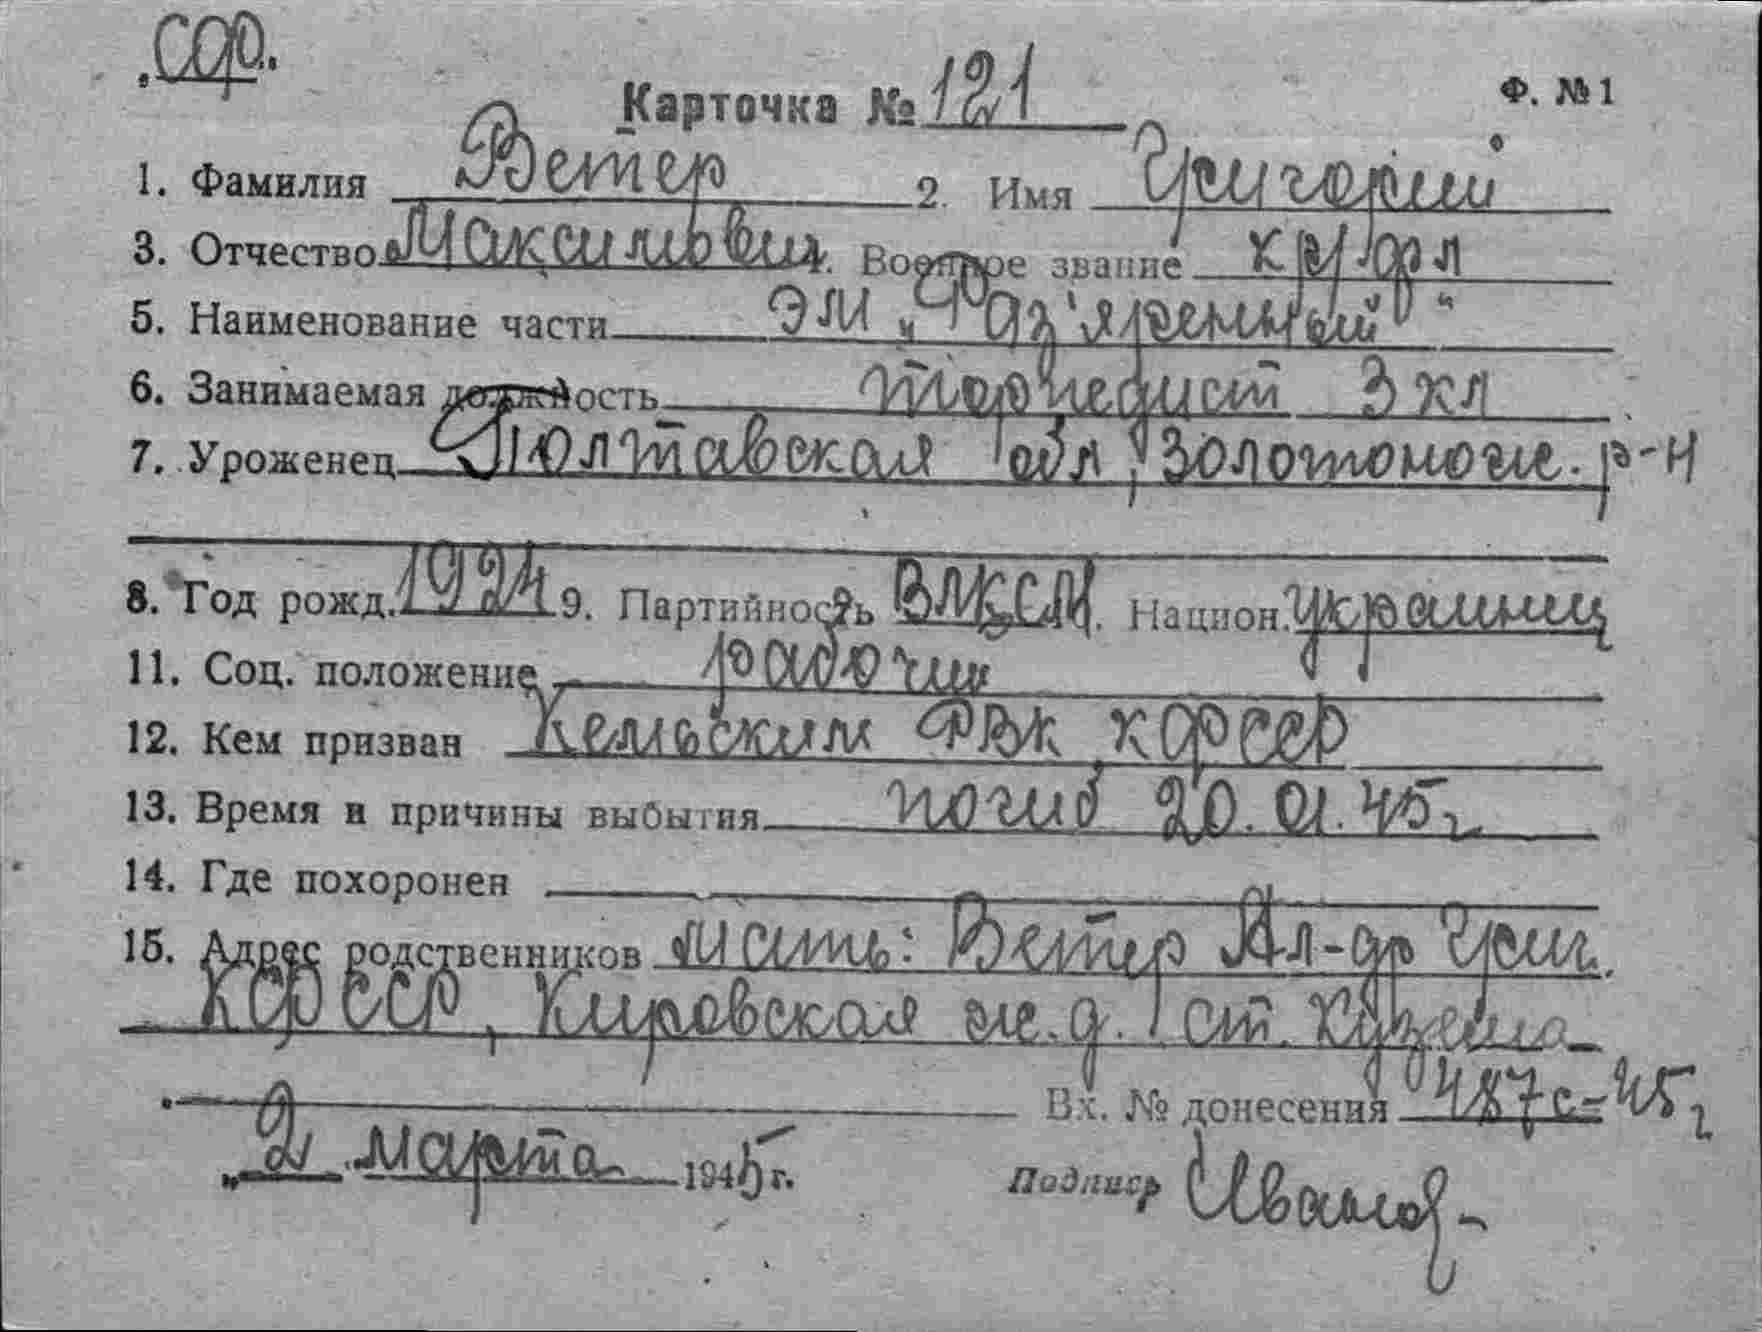 СФ.
Карточка № 121
Ф. № 1
1. Фамилия Ветер 2. Имя Григорий
3. Отчество Максимович. Военное звание кр/фл
5. Наименование части ЭМ "Раз'яренный"
6. Занимаемая должность торпедист 3 кл
7. Уроженец Полтавская обл, Золотонож. р-н
8. Год рожд. 1924 9. Партийность ВЛКСМ. Национ. украинец
11. Соц. положение рабочий
12. Кем призван Кемьским РВК КФССР
13. Время и причины выбытия погиб 20.01.45г
14. Где похоронен
15. Адрес родственников мать: Ветер Ал-др Григ.
КФССР, Кировская ж.д. ст. Кузема
Вх. № донесения 487с-45г
„2 марта 1945 г.
Подпись Иванов